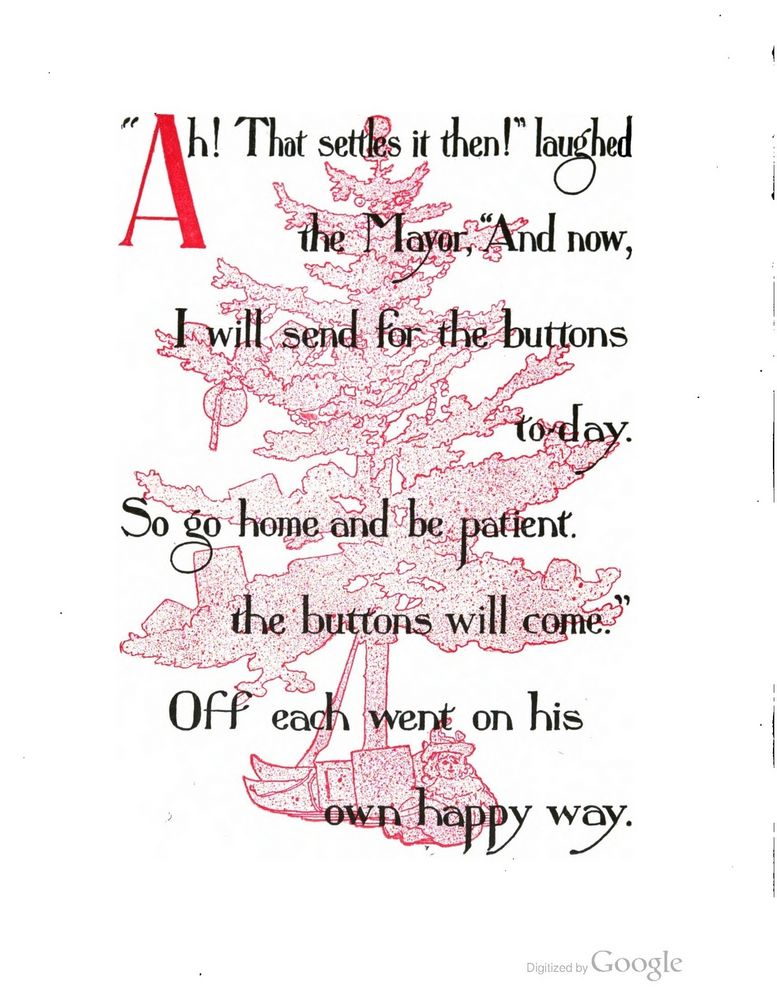 "Ah! That settles it then!" laughed
the Mayor, "And now,
I will send for the buttons
to-day.
So go home and be patient.
the buttons will come."
Off each went on his
own happy way.
Digitized by Google